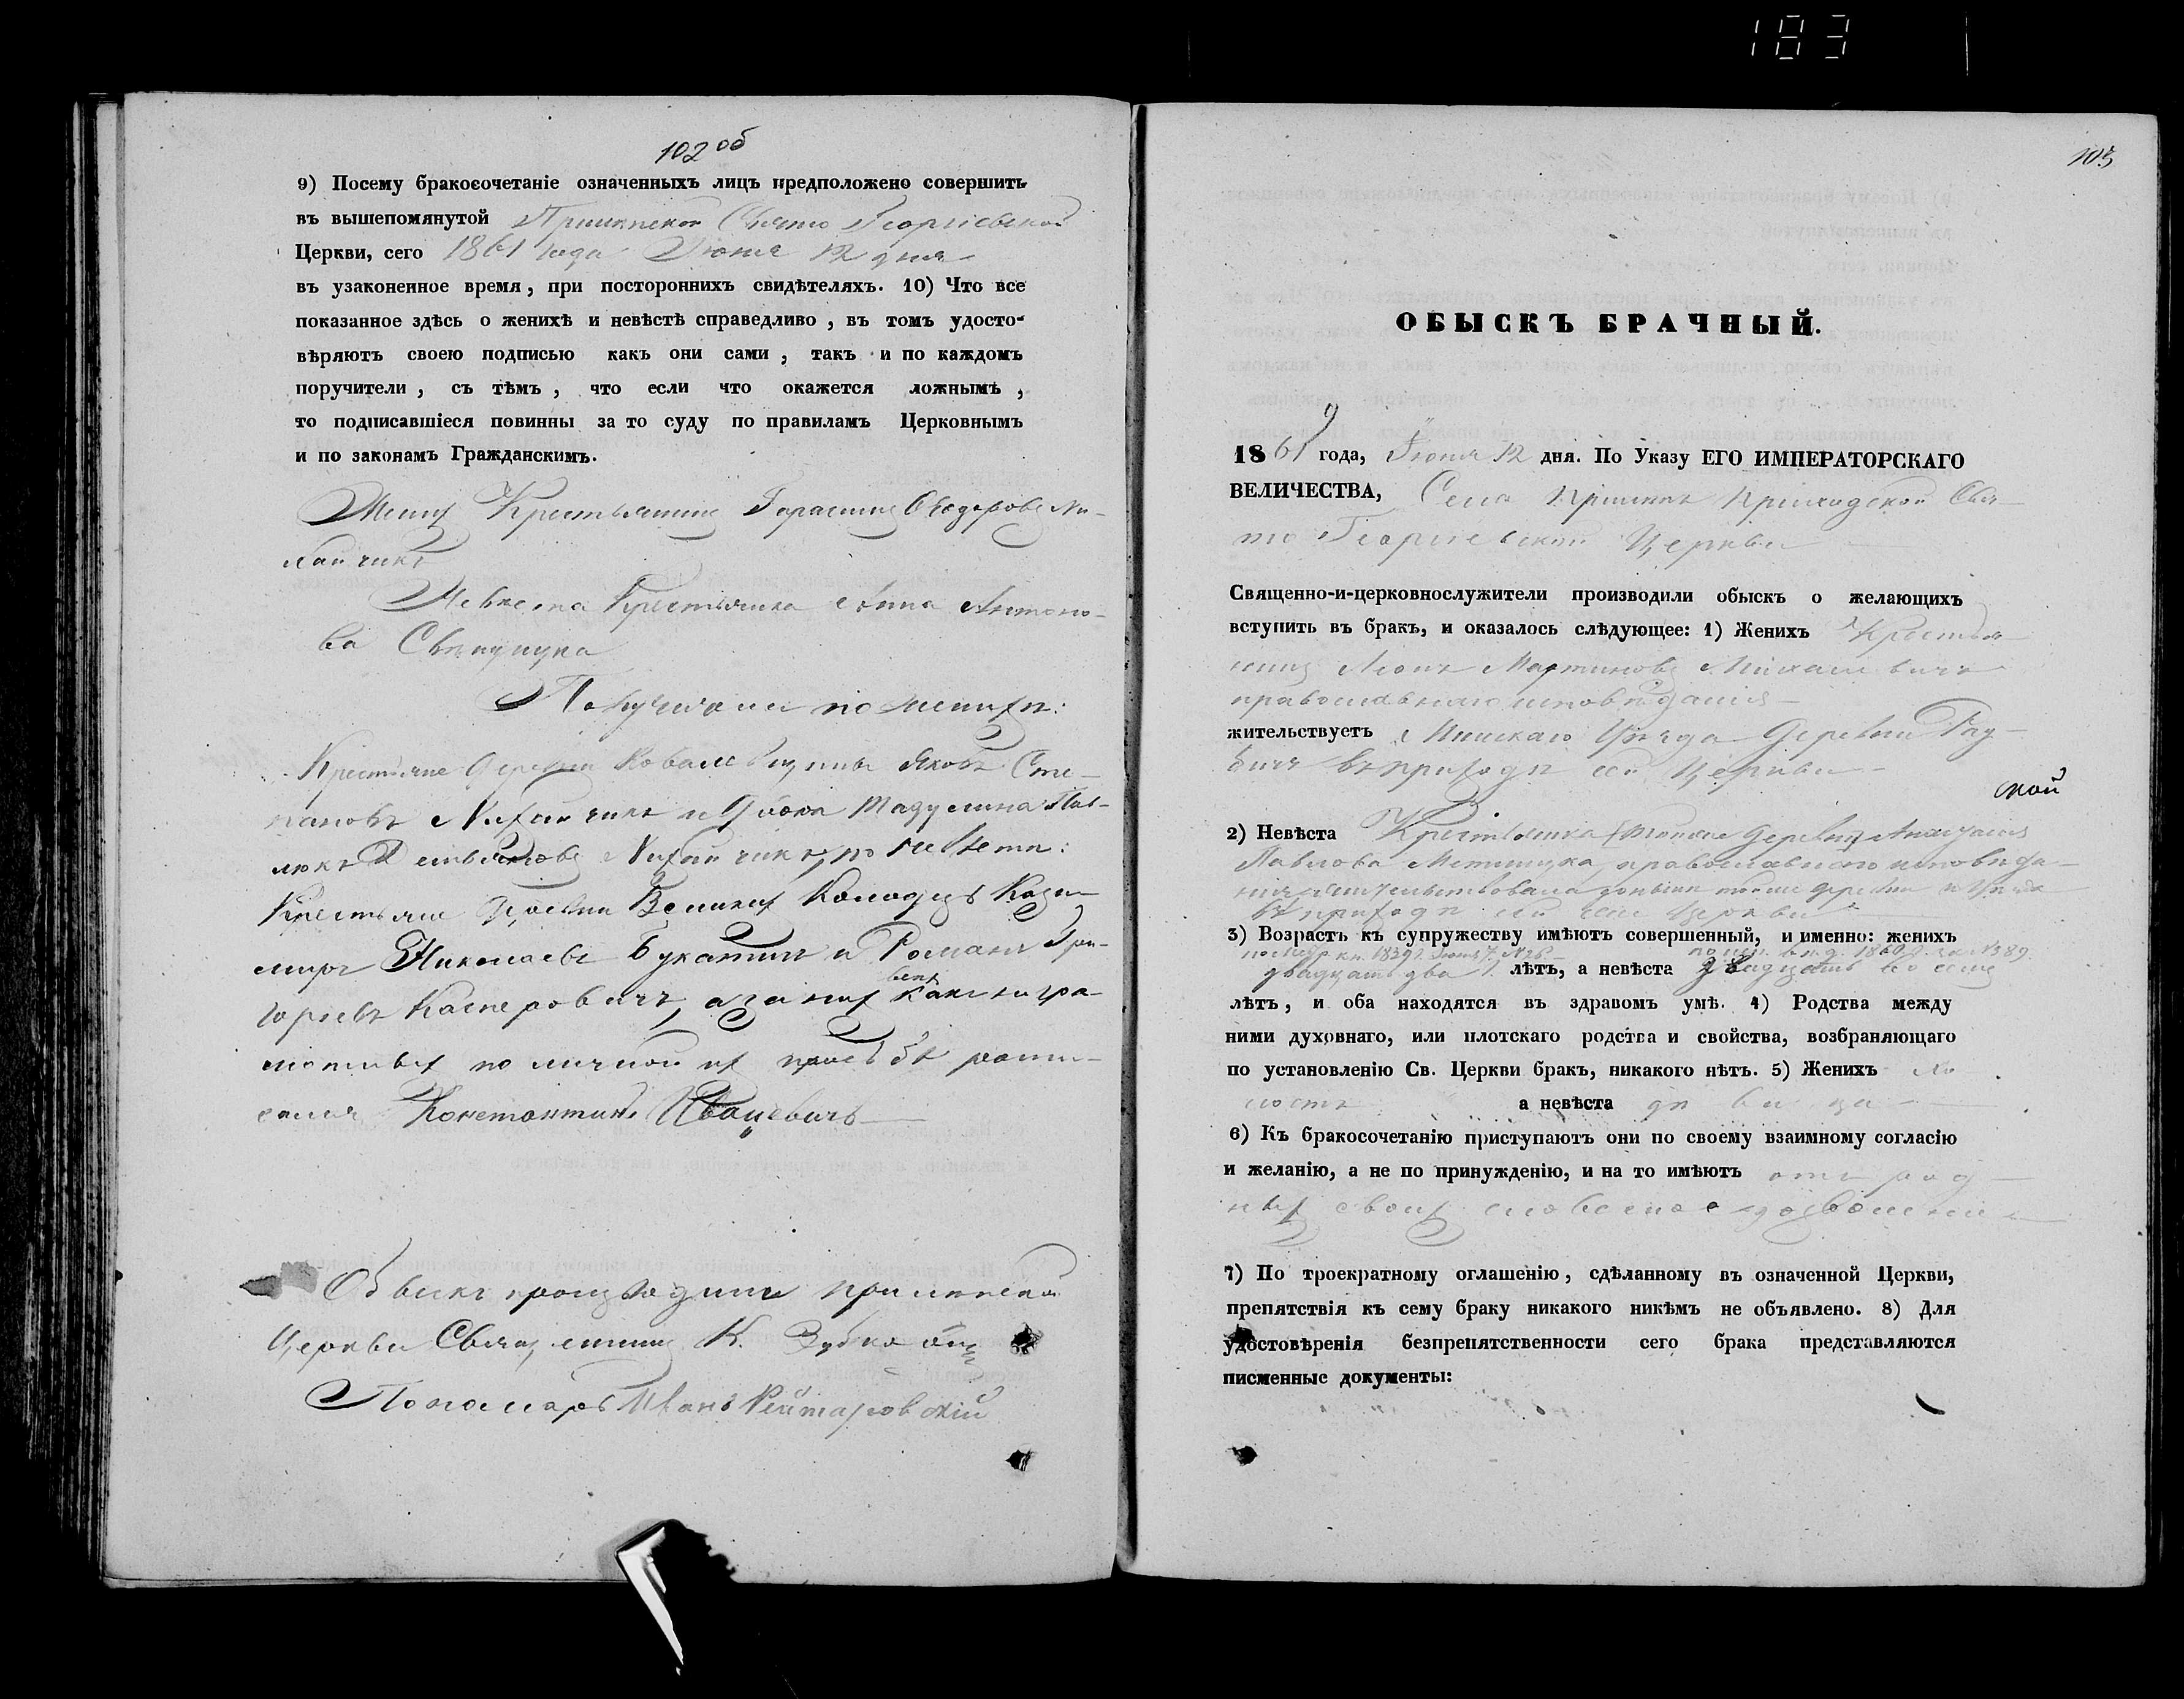 183
102 об
9) Посему бракосочетаніе означенныхъ лицъ предположено совершить
въ вышепомянутой Прилипской Свято Георгіевской
Церкви, сего 1861 года Іюня 12 дня
въ узаконенное время, при постороннихъ свидѣтеляхъ. 10) Что все
показанное здѣсь о женихѣ и невѣстѣ справедливо, въ томъ удосто-
вѣряютъ своею подписью какъ они сами, такъ и по каждомъ
поручители, съ тѣмъ, что если что окажется ложнымъ,
то подписавшіеся повинны за то суду по правиламъ Церковнымъ
и по законамъ Гражданскимъ.
Женихъ Крестьянинъ Герасимъ Ѳеодоровъ Ми-
хайчикъ
Невѣста Крестьянка Анна Антоно-
ва
Поручители по женихѣ:
Крестьяне Деревни Яковъ Сте-
пановъ Михайчикъ и
Михайчикъ, по невѣстѣ:
Крестьяне деревни Великихъ Колодцъ Кази-
миръ Николаевъ и Романъ Гри-
горьевъ Касперовичъ, а за нихъ всѣхъ какъ негра-
мотныхъ по личной ихъ просьбѣ роспи-
сался Константинъ Ивацевичъ
Обыскъ производили
Церкви Священникъ К. Зубко
Пономарь Иванъ Рейтаровскій
103
ОБЫСКЪ БРАЧНЫЙ.
1861 года, Іюня 12 дня. По Указу ЕГО ИМПЕРАТОРСКАГО
ВЕЛИЧЕСТВА, Села Прилипъ Приходской Свя-
то Георгіевской Церкви
Священно-и-церковнослужители производили обыскъ о желающихъ
вступить въ бракъ, и оказалось слѣдующее: 1) Женихъ Крестья
нинъ Мартиновъ Михалевичъ
православнаго исповѣданія
жительствуетъ Минскаго Уѣзда Деревни
въ приходѣ сей Церкви
2) Невѣста Крестьянка деревни
Павлова православнаго исповѣда-
нія жительствовала донынѣ той же деревни и Уѣзда
въ приходѣ сей же Церкви
3) Возрастъ къ супружеству имѣютъ совершенный, и именно: женихъ
двадцать два лѣтъ, а невѣста двадцать
лѣтъ, и оба находятся въ здравомъ умѣ. 4) Родства между
ними духовнаго, или плотскаго родства и свойства, возбраняющаго
по установленію Св. Церкви бракъ, никакого нѣтъ. 5) Женихъ хо
лостъ а невѣста дѣвица
6) Къ бракосочетанію приступаютъ они по своему взаимному согласію
и желанію, а не по принужденію, и на то имѣютъ отъ род
ныхъ своихъ словесное дозволеніе
7) По троекратному оглашенію, сдѣланному въ означенной Церкви,
препятствія къ сему браку никакого никѣмъ не объявлено. 8) Для
удостовѣренія безпрепятственности сего брака представляются
писменные документы: